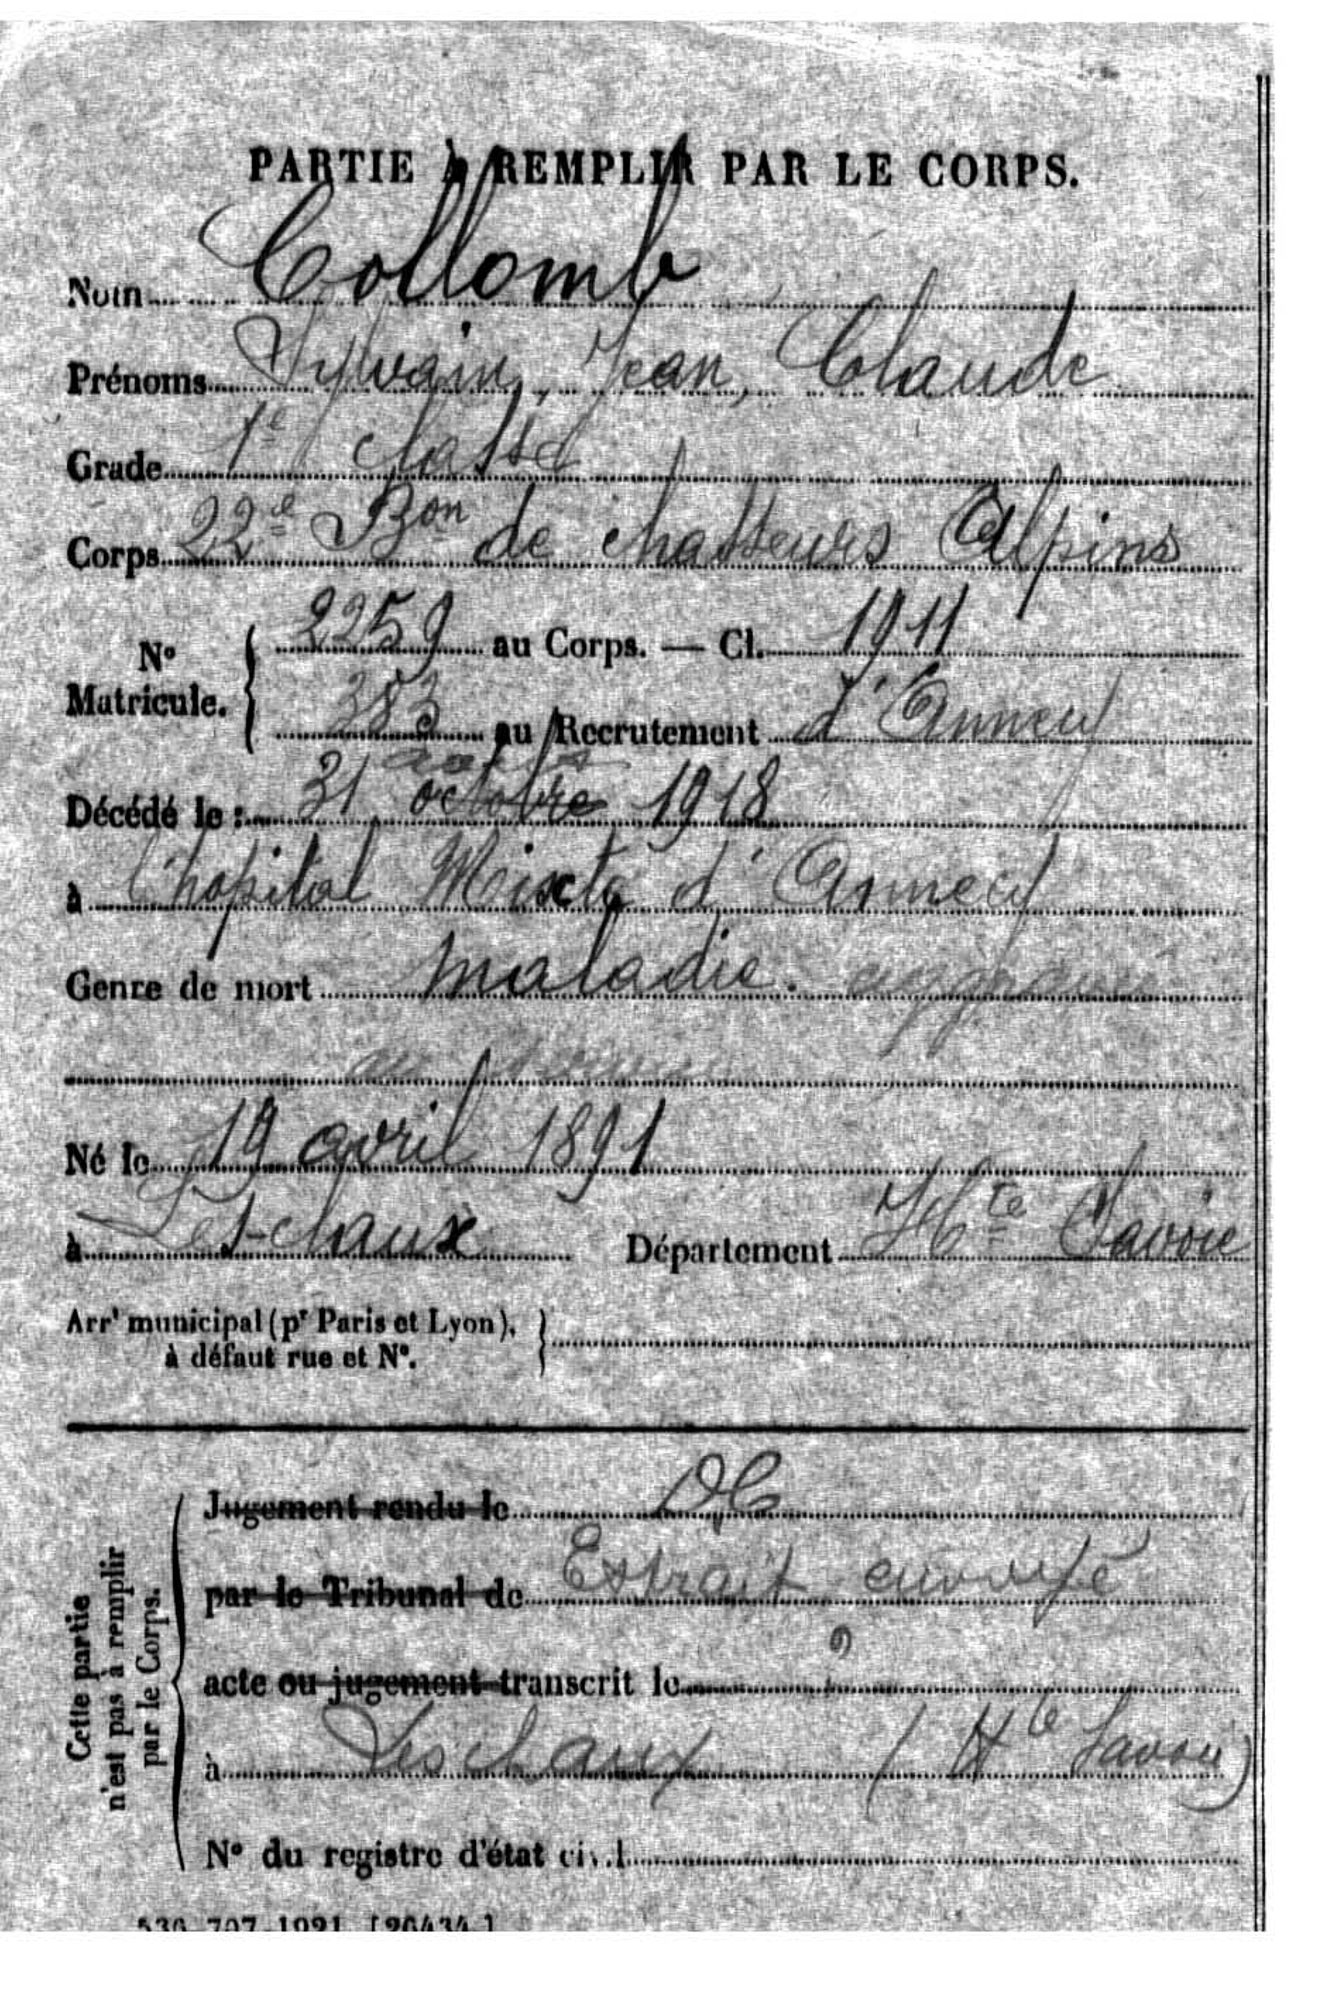 PARTIE À REMPLIR PAR LE CORPS.
Nom Collomb
Prénoms Sylvain, Jean, Claude
Grade 1e classe
Corps 22e Bon de chasseurs Alpins
No Matricule. 2259 au Corps. — Cl. 1911
383 au Recrutement d'Annecy
août
Décédé le : 31 octobre 1918
à l'hôpital Mixte d'Annecy
Genre de mort maladie. aggravée
au service
Né le 19 avril 1891
à Les-chaux Département Hte Savoie
Arrt municipal (pr Paris et Lyon), à défaut rue et No.
Cette partie n'est pas à remplir par le Corps.
Jugement rendu le DC
par le Tribunal de Extrait envoyé
acte ou jugement transcrit le
à Leschaux (Hte Savoie)
No du registre d'état civil
536-707-1921. [26434.]